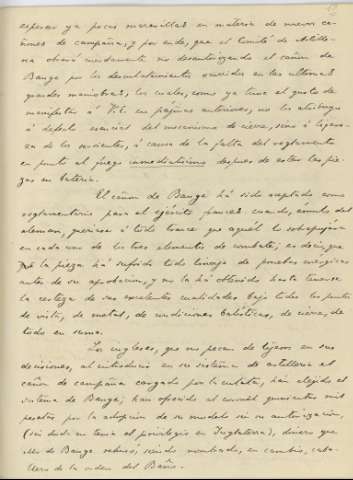 esperar ya pocas maravillas en materia de nuevos ca-
ñones de campaña, y por ende, que el Comité de Artille-
ría obrará cuerdamente no desautorizando el cañon de
Bange por los desculatamientos ocurridos en las ultimas
grandes maniobras, los cuales, como ya tuve el gusto de
manifestar á V.E. en páginas anteriores, no los atribuyo
á defecto esencial del mecanismo de cierre, sino á ligere-
za de los sirvientes, ó causa de la falta del reglamento
en punto al fuego inmediatisimo despues de estar las pie-
zas en batería.
El cañon de Bange há sido aceptado como
reglamentario para el ejército francés cuando, émulo del
aleman, queriase á todo trance que aquél lo sobrepujara
en cada uno de los tres elementos de combate; es decir, que
la pieza há sufrido todo linage de pruebas enérgicas
antes de su aprobacion, y no la há obtenido hasta tenerse
la certeza de sus excelentes cualidades bajo todos los puntos
de vista, de metal, de condiciones balísticas, de cierre, de
todo en suma.
Los ingleses, que no pecan de ligeros en sus
decisiones, al introducir en su sistema de artillería el
cañon de campaña cargado por la culata, han elejido el
sistema de Bange; han ofrecido al coronel quinientas mil
pesetas por la adopcion de su modelo sin su autorizacion,
(sin duda no tenia el privilegio en Inglaterra), dinero que
Mr. de Bange rehusó, siendo nombrado, en cambio, caba-
llero de la órden del Baño.